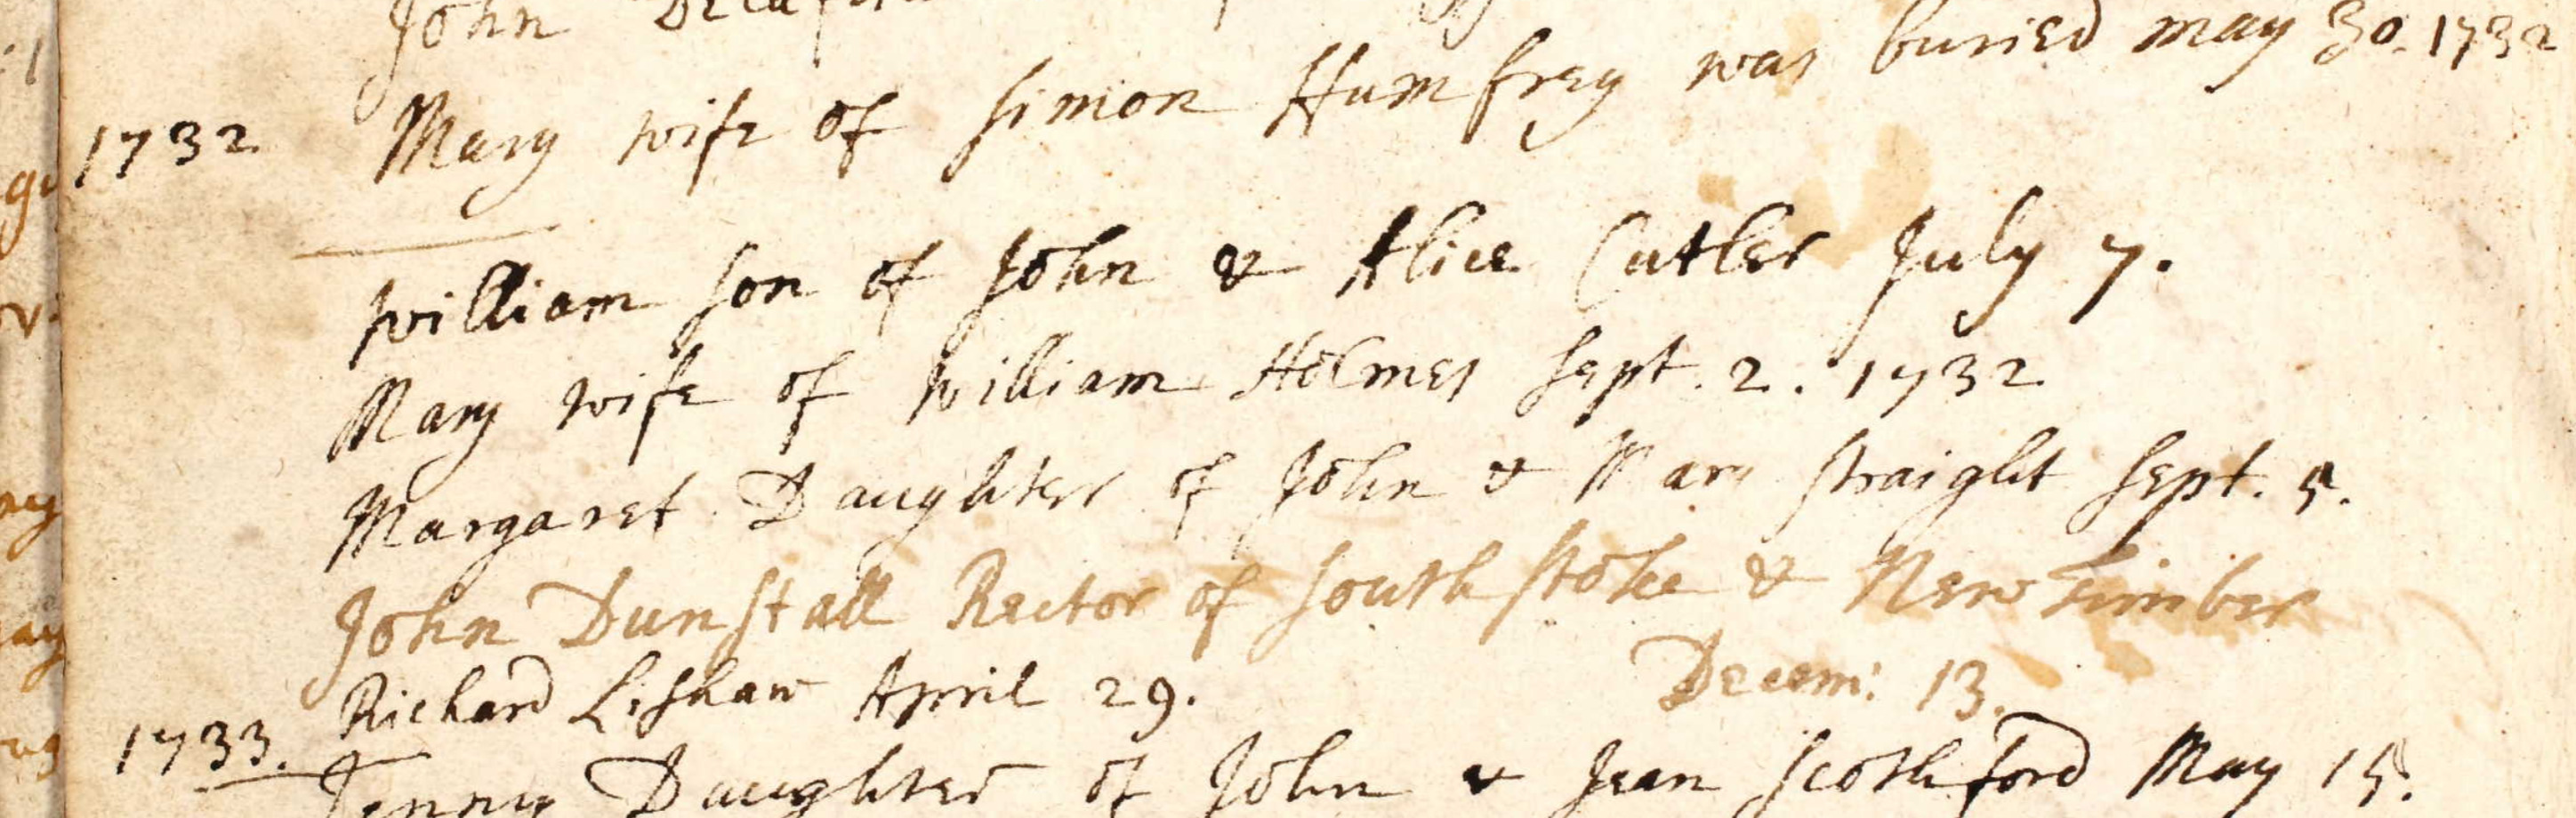 John
1732 Mary wife of Simon Humfrey was buried may 30. 1732
William son of John & Alice Cutler July 7.
Mary wife of William Holmes Sept. 2. 1732
Margaret Daughter of John & Mary Straight Sept. 5.
John Dunstall Rector of South Stoke & Newtimber
Decem: 13.
Richard Lishaw April 29.
1733. Jenny Daughter of John & Jean Scothford May 15.